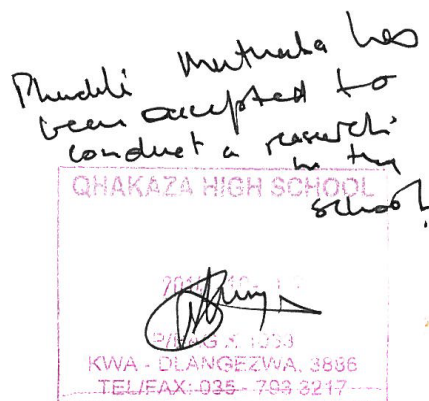 has
been accepted to
conduct a research
in the
school.
QHAKAZA HIGH SCHOOL
KWA - DLANGEZWA, 3886
TEL/FAX: 035 - 793 3217